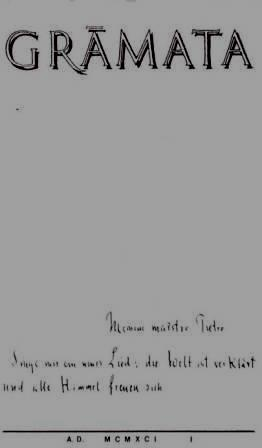 GRĀMATA
Meinem maëstro Pietro
Singe mir ein neues Lied: die Welt ist verklärt
und alle Himmel freuen sich
A.D. MCMXCI I